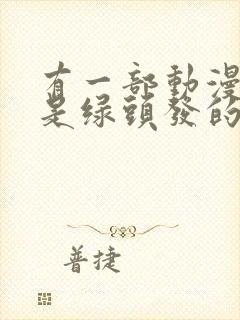 有一部動漫
是綠頭發的
普捷